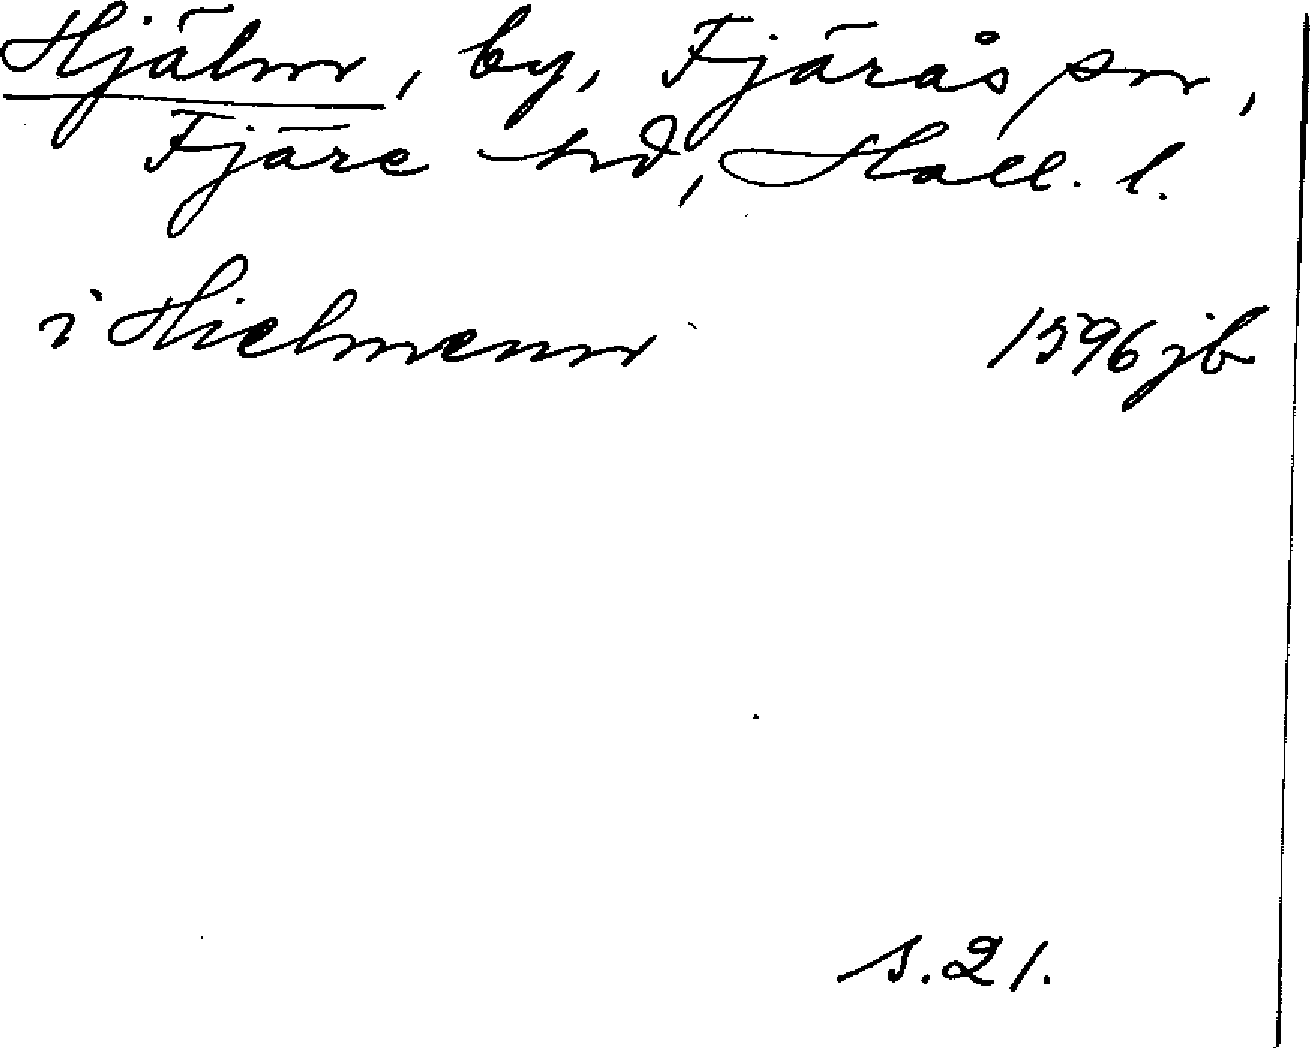 Hjälm, by, Fjärås sn,
Fjäre hd, Hall. l.
i Hielmenn 1596 jb
s. 21.